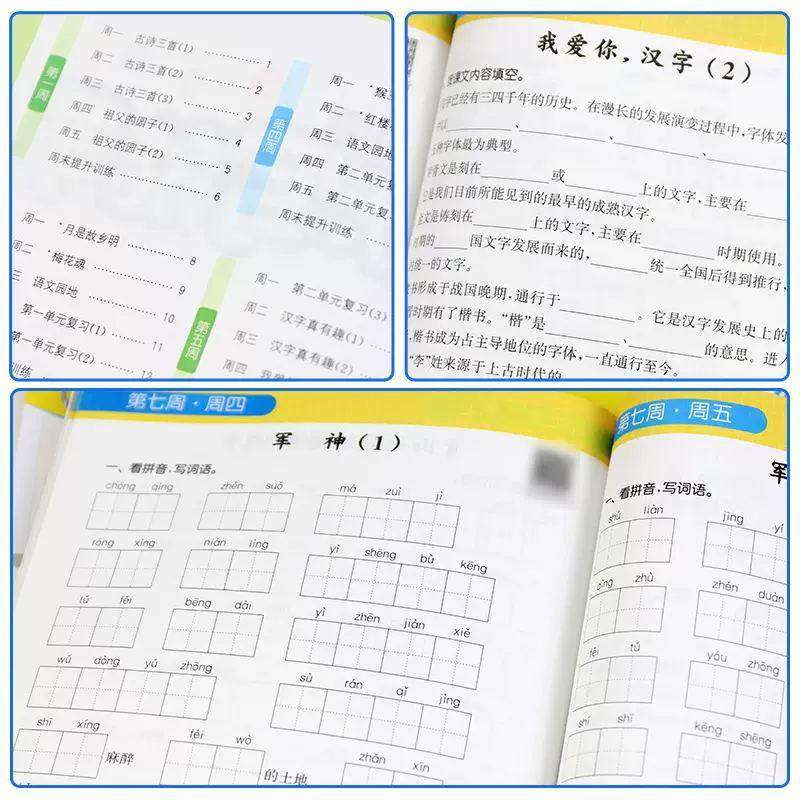 第一周
周一 古诗三首(1) ………… 1
周二 古诗三首(2) ………… 2
周三 古诗三首(3) ………… 3
周四 祖父的园子(1) ………… 4
周五 祖父的园子(2) ………… 5
周末提升训练 ………… 6
周一 *月是故乡明 ………… 8
周二 *梅花魂 ………… 9
三 语文园地 ………… 10
第一单元复习(1) ………… 11
第一单元复习(2) ………… 12
第四周
周一 *猴
周二 *红楼
周三 语文园地
周四 第二单元复
周五 第二单元复
周末提升训练
第五周
周一 第二单元复习(3)
周二 汉字真有趣(1)
周三 汉字真有趣(2)
周四
我爱你,汉字(2)
课文内容填空。
字已经有三四千年的历史。在漫长的发展演变过程中,字体发
以______、______、______、
种字体最为典型。
骨文是刻在______或______上的文字,主要在
它是我们目前所能见到的最早的成熟汉字。
金文是铸刻在______上的文字,主要在______时期使用。
时期的______国文字发展而来的,______统一全国后得到推行,
统一的文字。
书形成于战国晚期,通行于______。它是汉字发展史上的
时期有了楷书。“楷”是______、______的意思。进入
楷书成为占主导地位的字体,一直通行至今。
“李”姓来源于上古时代的
第七周·周四
军 神(1)
一、看拼音,写词语。
chóng qìng zhěn suǒ má zuì jì
róng xìng nián líng yì shēng bù kēng
tǔ fěi bēng dài yì zhēn jiàn xiě
wú dòng yú zhōng sù rán qǐ jìng
shī xíng 麻醉 féi wò 的土地 zhǎn xīn
第七周·周五
军
一、看拼音,写词语。
shú liàn jīng yí
qìng zhù zhěn duàn
fěi tú yóu zhōng
shī shī kēng shēng